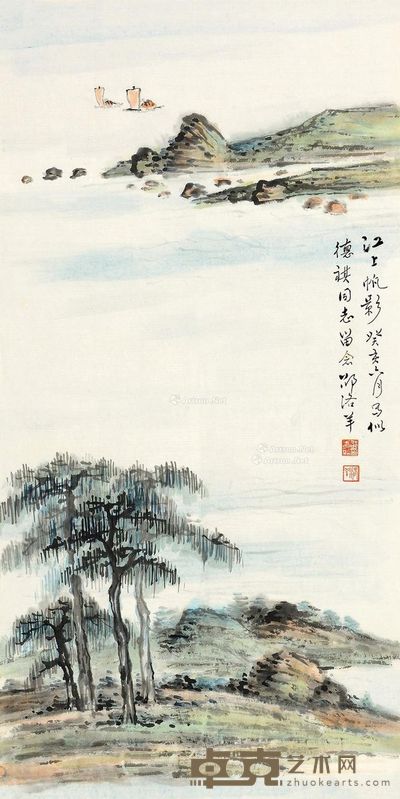 江上帆影 癸亥六月写似
德祺同志留念 邵洛羊
Artron.Net
Artron.Net
Artron.Net
卓克艺术网
zhuokearts.com